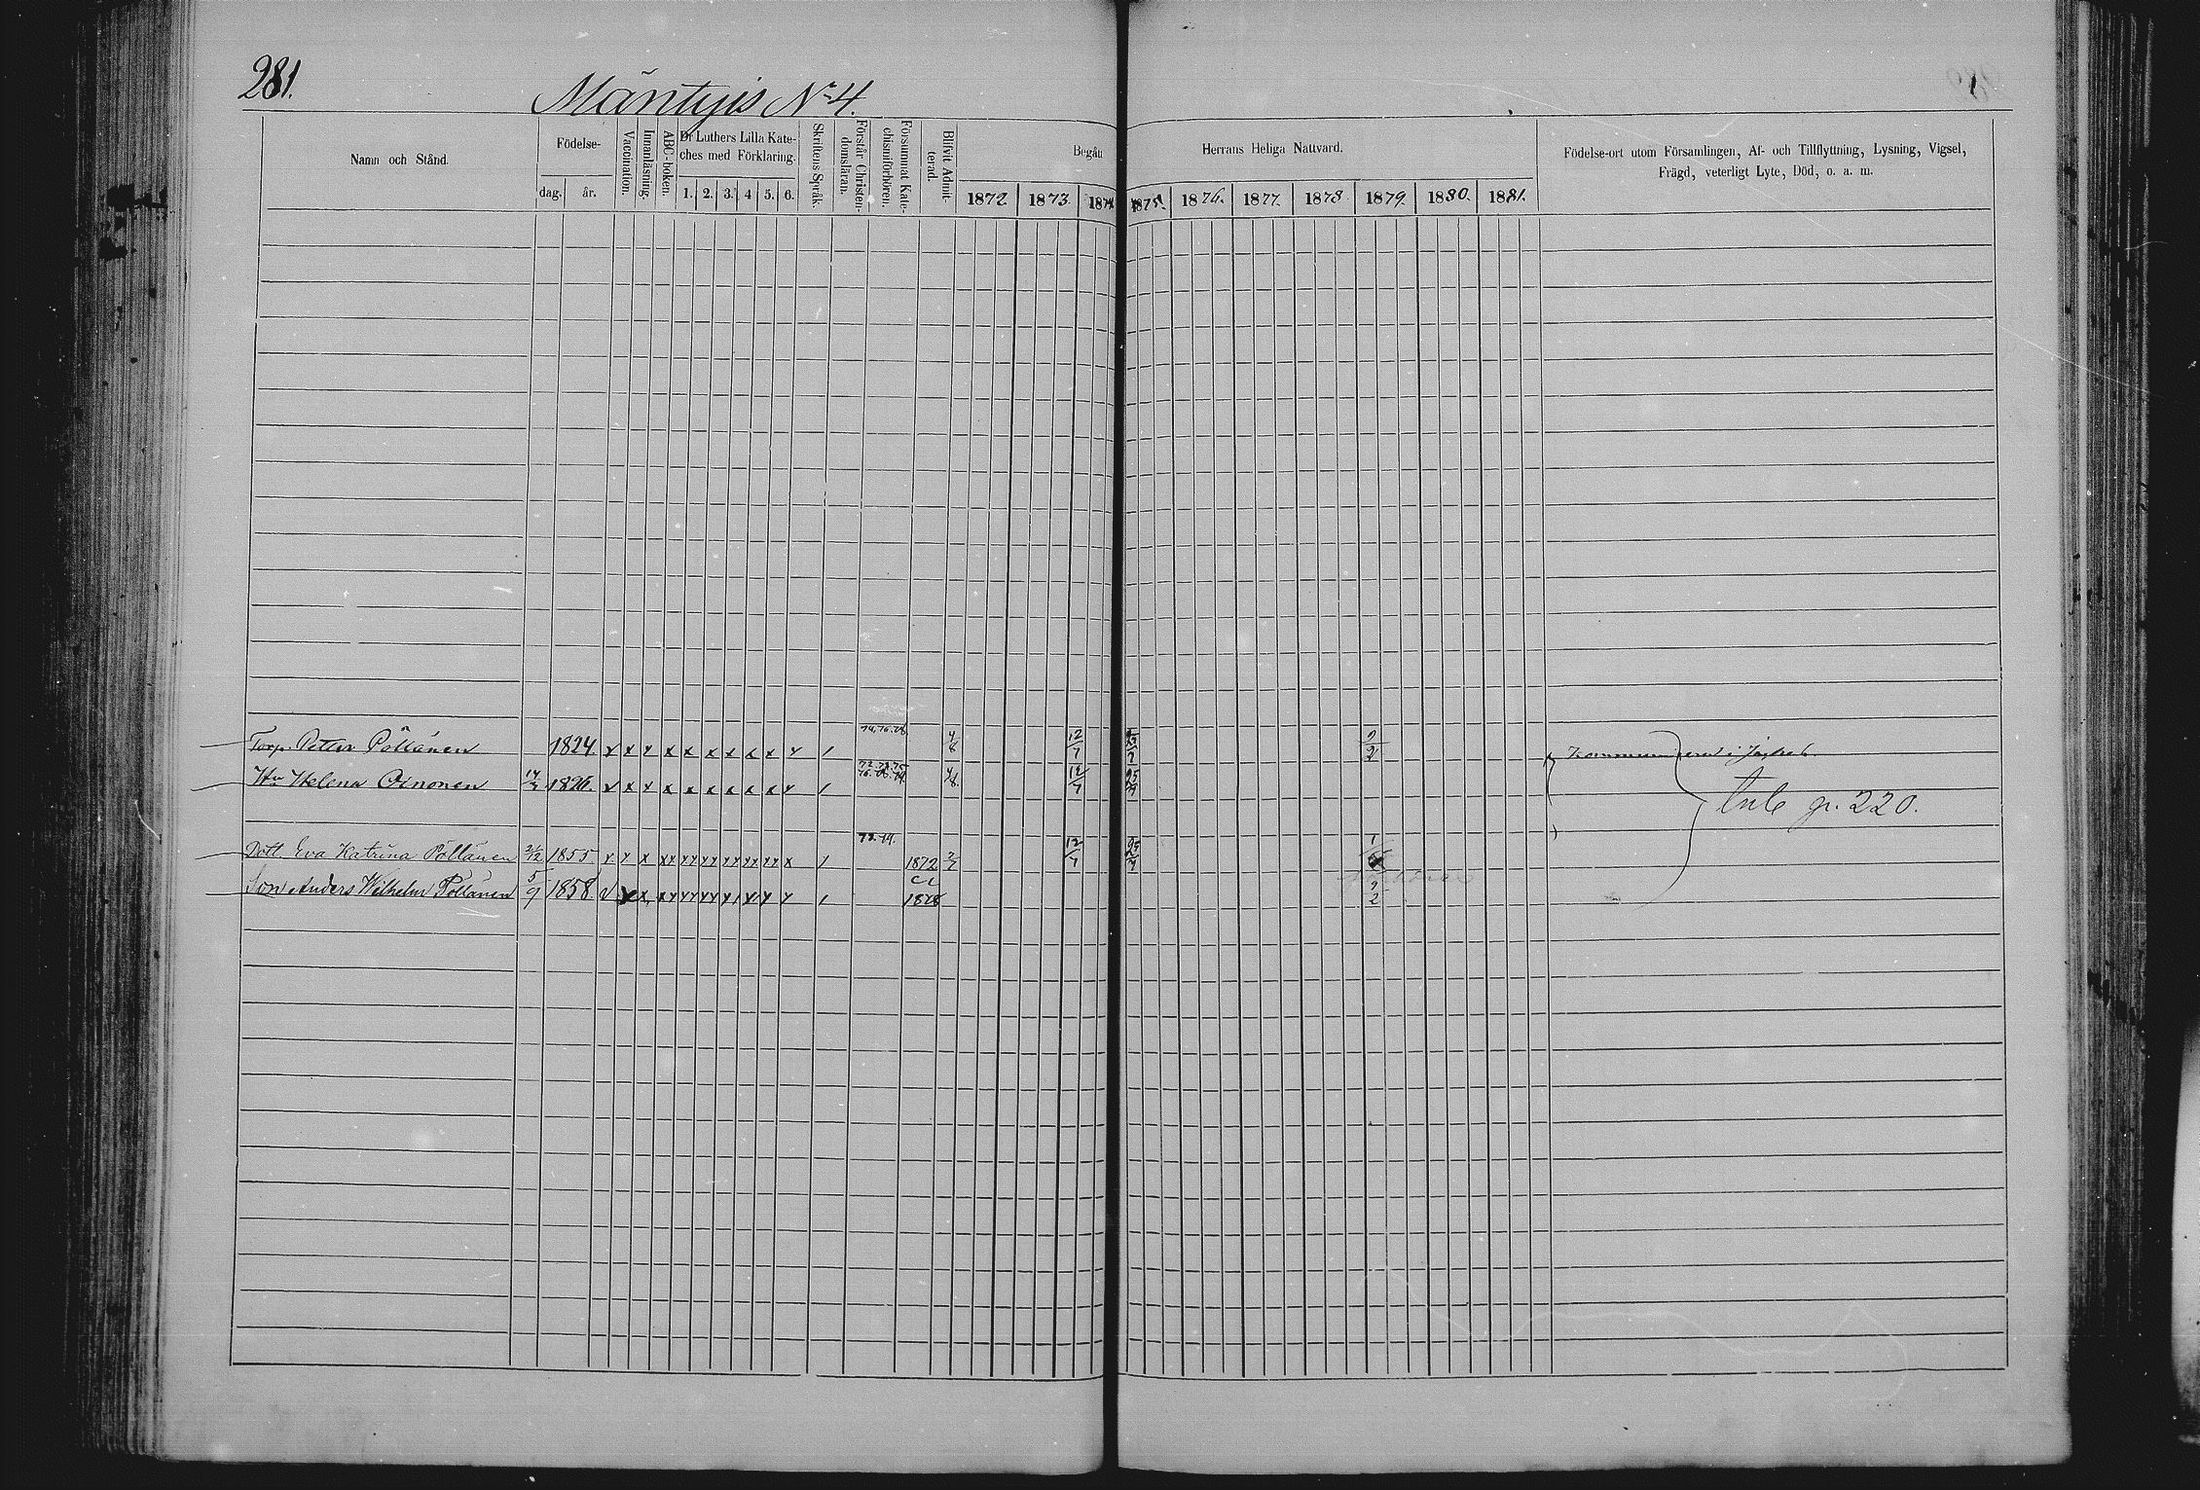 281.
Mäntyis No 4.
Namn och Stånd.
Födelse-
dag. år.
Vaccination.
Innanläsning.
ABC-boken.
Dr Luthers Lilla Kate-
ches med Förklaring.
1. 2. 3. 4 5. 6.
Skriftens Språk.
Förstår Christen-
domsläran.
Försummat Kate-
chismiförhören.
Blifvit Admit-
terad.
Begått Herrans Heliga Nattvard.
1872 1873 1874 1875. 1876. 1877. 1878 1879. 1880. 1881.
Födelse-ort utom Församlingen, Af- och Tillflyttning, Lysning, Vigsel,
Frägd, veterligt Lyte, Död, o. a. m.
Torp. Petter Pöllänen 1824. x x x x x x x x x x / 4/8 12/7 2/2
Hu Helena Oinonen 1826. x x x x x x x x x x / 4/8 12/7 25/7
p. 220.
Dott. Eva Katrina Pöllänen 21/12 1855 x x x xx xx xx xx xx x / 72.74. 1872 2/7 12/7 25/7
Son Anders Wilhelm Pöllänen 5/9 1858. / 1878 2/2